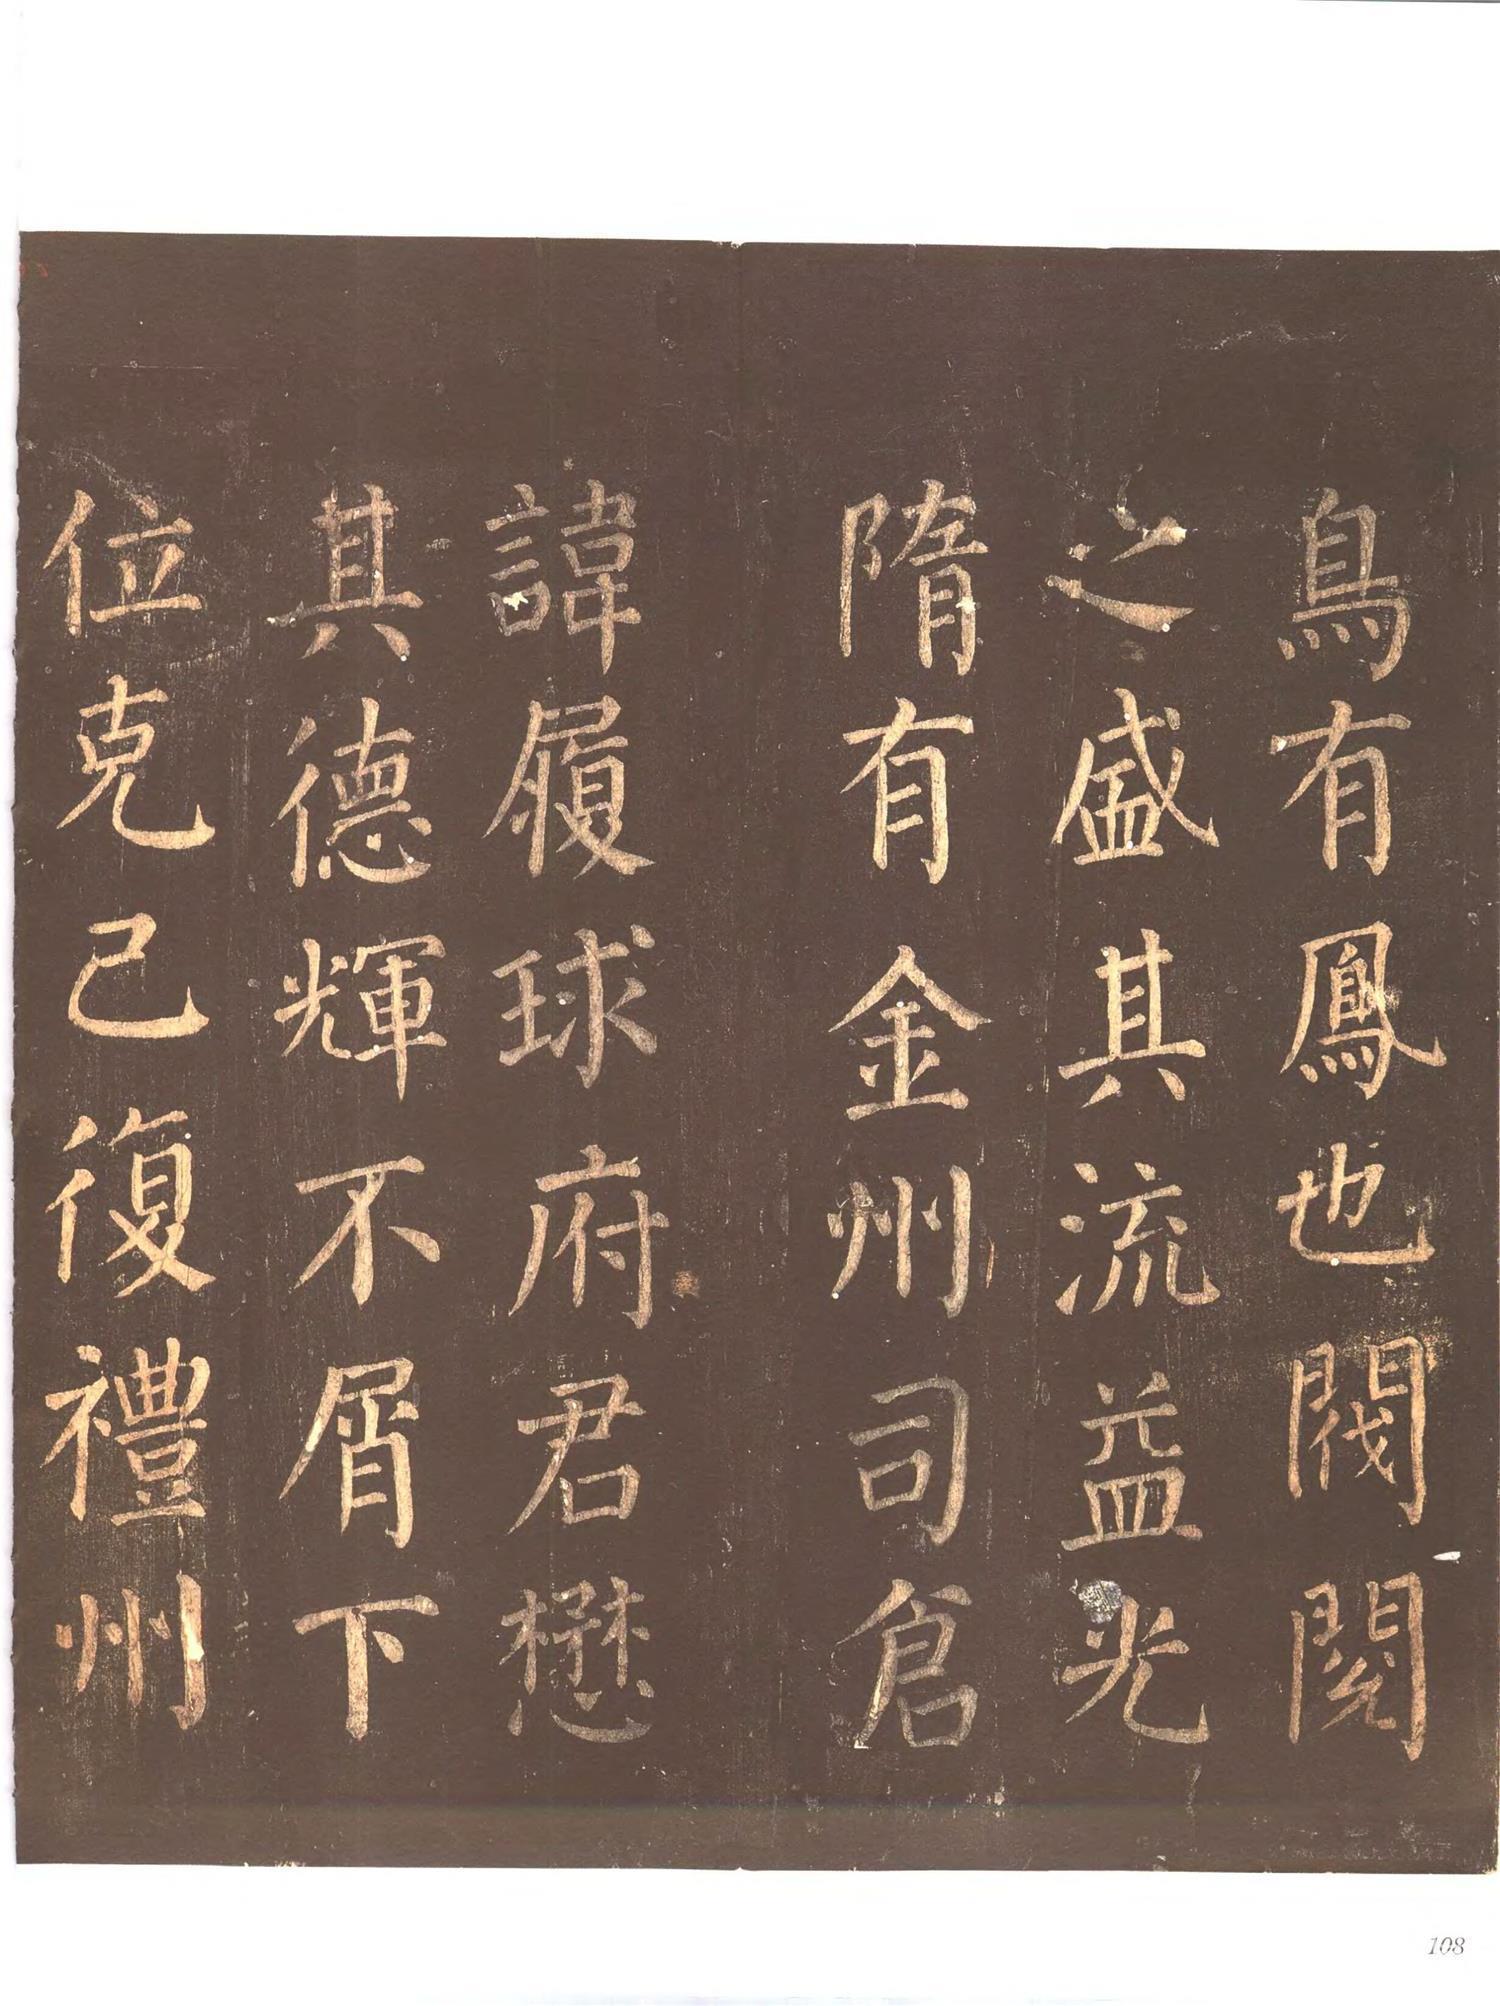 鳥有鳳也閥閱
之盛其流益光
隋有金州司倉
諱履球府君懋
其德輝不屑下
位克己復禮州
108